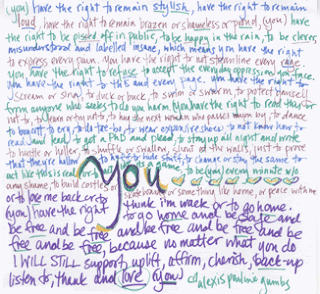 (you) have the right to remain stylish, have the right to remain
loud, have the right to remain brazen or shameless or proud, (you) have
the right to be pissed off in public, to be happy in the rain, to be clever,
misunderstood and labelled insane, which means you have the right
to express every pain. You have the right to not streamline every rage.
You have the right to refuse to accept the everyday oppressive
You have the right to this and every page. You have the right to
scream or sing, to live or to swim or swarm, to protect
from anyone who seeks to do you harm. (you) have the right to read this or
not to, to learn or not to, to hug the next woman who passes you by, to dance
to to cry, to to wear expensive shoes to not know how to
read and to get a PhD and to stay up all night and wrote
to hustle or holler, shuffle, or swallow, climb at the walls, just to prove
that they're hollow, to hide stuff, to change or stay the same to
act like this is real or game to be (you) every minute
away shame, to build castles or something like home, or peace with me
or to love me back or to think i'm wack or to go home.
you
(you) have the right to go home and be safe and
be free and be free and be free and be free and
be free and be free, because no matter what you do
I WILL STILL support, uplift, affirm, cherish, back-up
listen to, thank and love (you)
alexis pauline gumbs